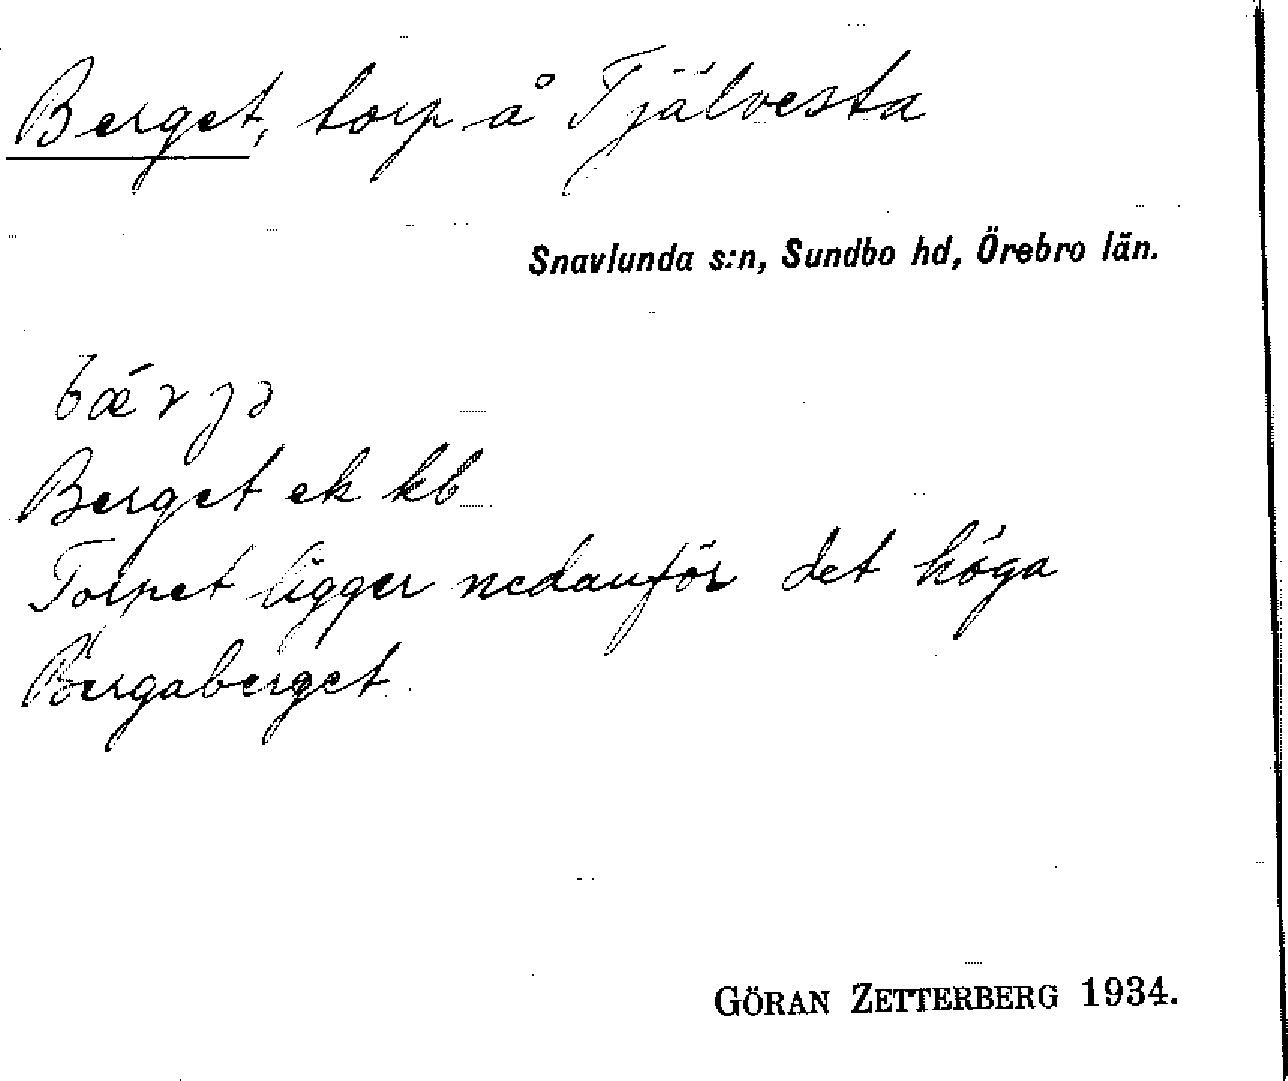 Berget, torp å Tjälvesta
Snavlunda s:n, Sundbo hd, Örebro län.
bærjə
Berget ek kb
Torpet ligger nedanför det höga
Borgaberget.
GÖRAN ZETTERBERG 1934.